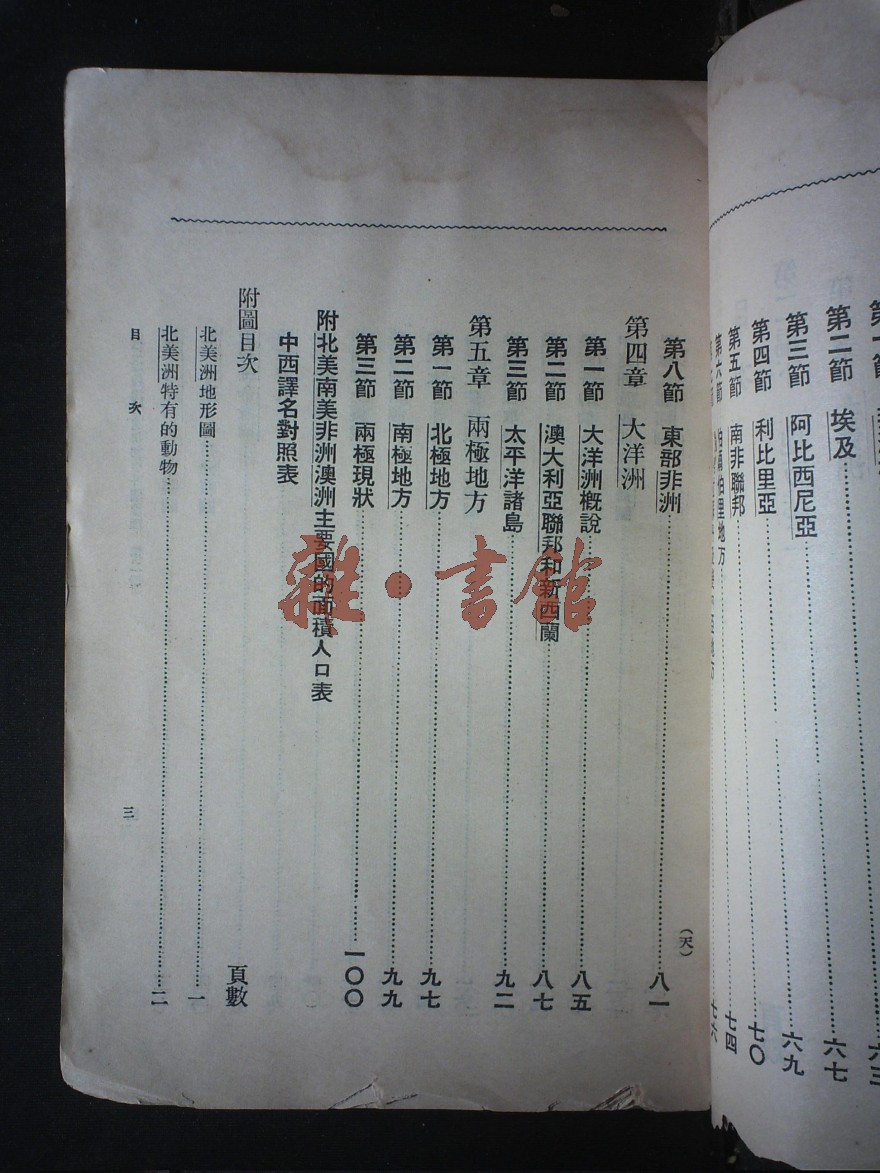 第二節 埃及 六七
第三節 阿比西尼亞 六九
第四節 利比里亞 七〇
第五節 南非聯邦 七四
第六節 七六
(天)
第八節 東部非洲 八一
第四章 大洋洲
第一節 大洋洲概說 八五
第二節 澳大利亞聯邦和新西蘭 八七
第三節 太平洋諸島 九二
第五章 兩極地方
第一節 北極地方 九七
第二節 南極地方 九九
第三節 兩極現狀 一〇〇
附北美南美非洲澳洲主要國的面積人口表
中西譯名對照表
附圖目次 頁數
北美洲地形圖 一
北美洲特有的動物 二
目次 三
雜·書館